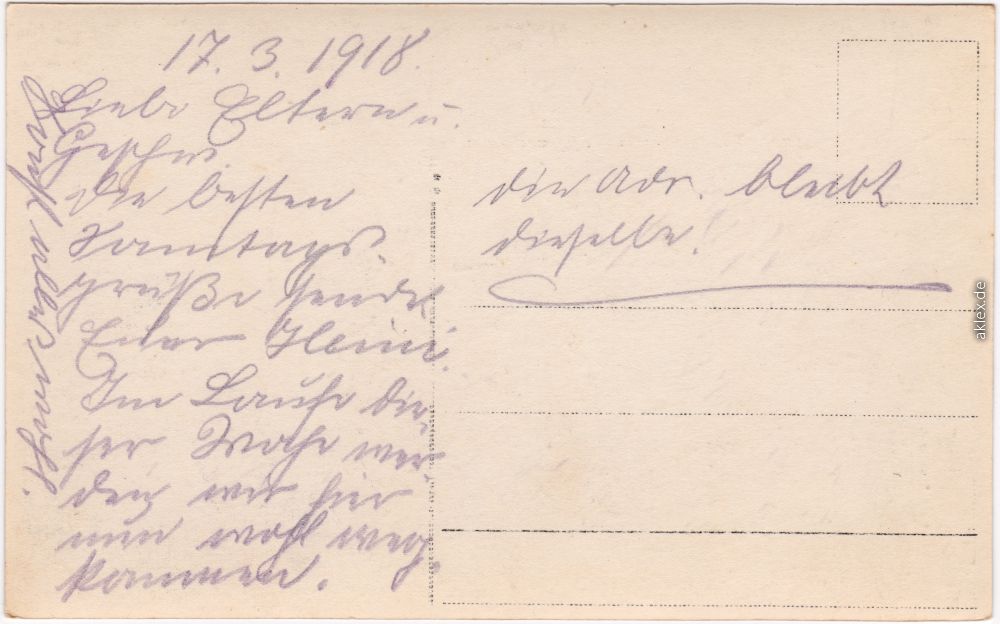 17. 3. 1918.
Liebe Eltern u.
Geschw.
Die besten
Sonntags-
grüße sendet
Euer Heini.
Im Laufe die-
ser Woche wer-
den wir hier
nun wohl weg-
kommen.
die Adr. bleibt
dieselbe!
aklex.de